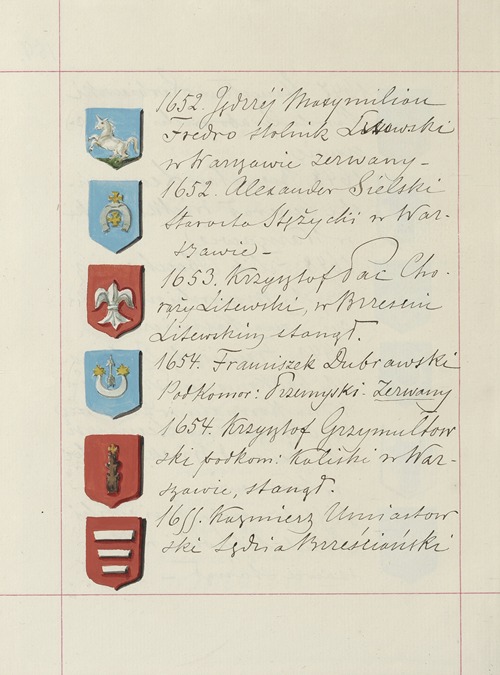 1652. Jędrzéj Maxymilian
Fredro stolnik Lwowski
w Warszawie zerwany –
1652. Alexander Sielski
Starosta Stężycki w War-
szawie –
1653. Krzysztof Pac Cho-
rąży Litewski, w Brzesciu
Litewskim, stanął.
1654. Franciszek Dubrawski
Podkomor: Przemyski. Zerwany
1654. Krzysztof Grzymułtow
ski podkom: Kaliski w War-
szawie, stanął.
1655. Kazimierz Umiastow
ski Sędzia Brześciański